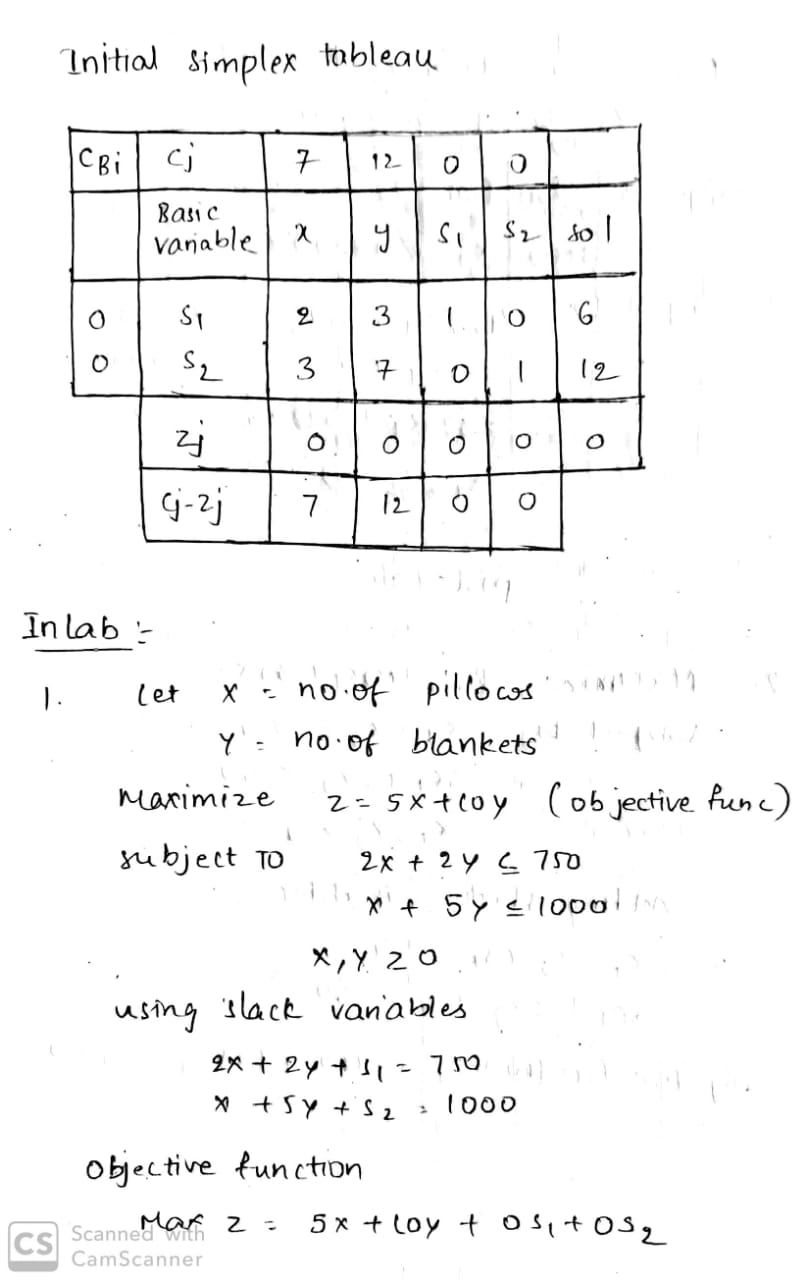 Initial simplex tableau
CBi Cj 7 12 0 0
Basic variable x y S1 S2 sol
0 S1 2 3 1 0 6
0 S2 3 7 0 1 12
Zj 0 0 0 0 0
Cj-Zj 7 12 0 0
In lab :-
1. Let x = no. of pillows
Y = no. of blankets
Maximize z = 5x + 10y (objective func)
subject TO 2x + 2y ≤ 750
x + 5y ≤ 1000
x, y ≥ 0
using slack variables
2x + 2y + s1 = 750
x + 5y + s2 = 1000
Objective function
Max z = 5x + 10y + 0s1 + 0s2
CS Scanned with
CamScanner